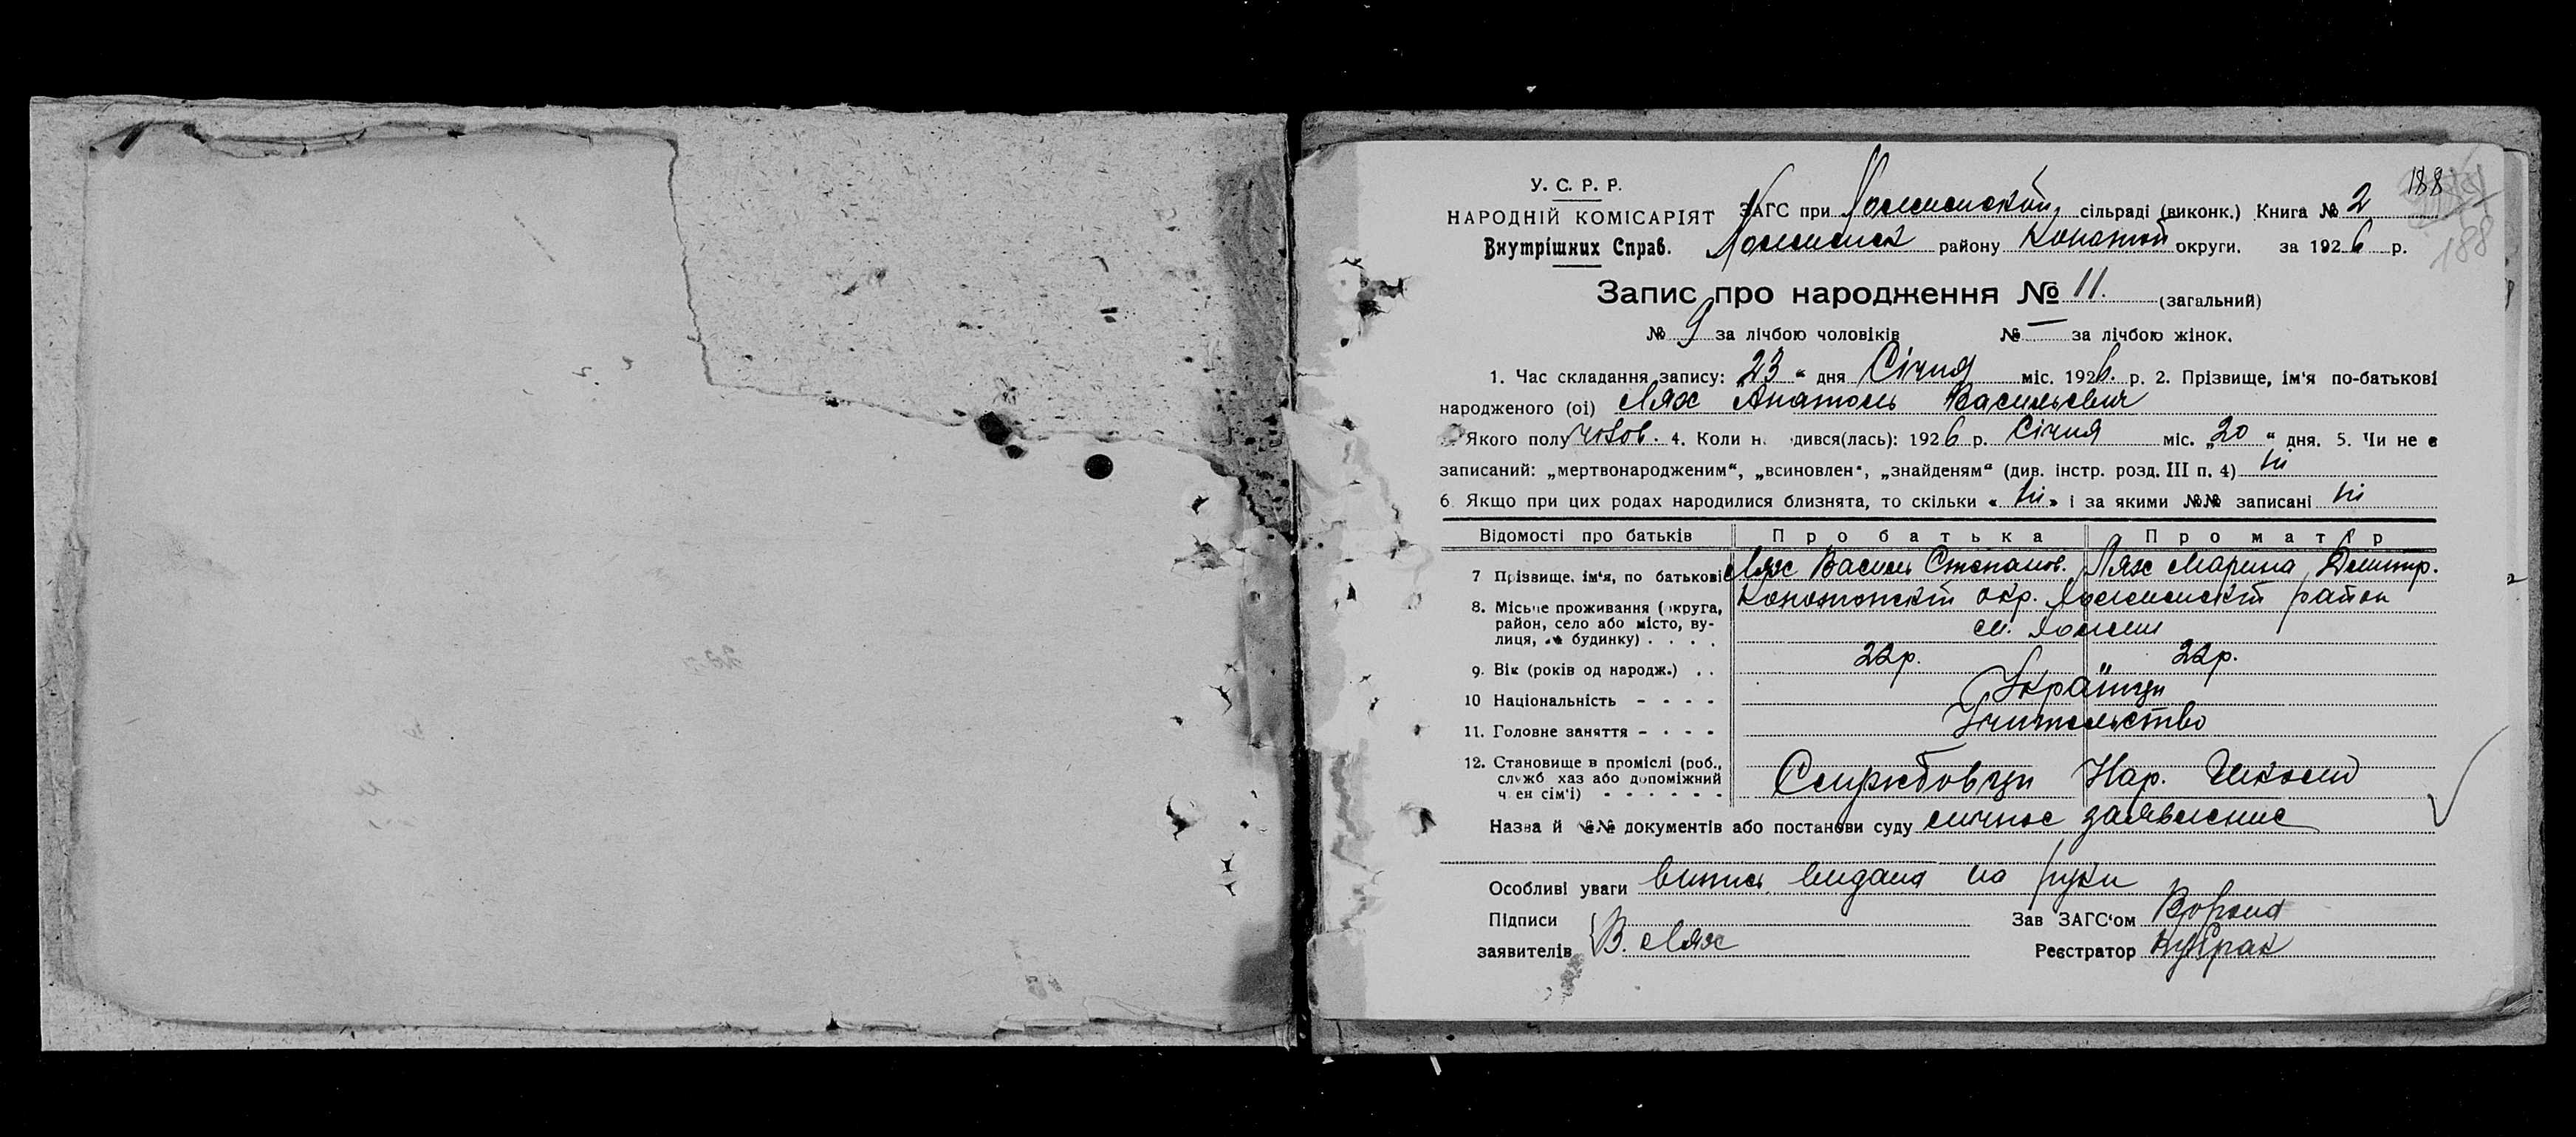 188
У. С. Р. Р.
НАРОДНІЙ КОМІСАРІЯТ
Внутрішних Справ.
ЗАГС при сільраді (виконк.) Книга № 2
188
району Конотоп округи. за 1926 р.
Запис про народження № 11. (загальний)
№ 9 за лічбою чоловіків № — за лічбою жінок.
1. Час складання запису: „23“ дня Січня міс. 1926. р. 2. Прізвище, ім'я по-батькові
народженого (ої) Лях Анатоль Васильевич
Якого полу чолов. 4. Коли н дився(лась): 1926 р. Січня міс. „20“ дня. 5. Чи не є
записаний: „мертвонародженим“, „всиновлен“, „знайденям“ (див. інстр. розд. III п. 4) ні
6 Якщо при цих родах народилися близнята, то скільки « ні » і за якими №№ записані ні
Відомості про батьків Про батька Про матір
7 Прізвище, ім'я, по батькові Лях Василь Степанов. Лях Марина Дмитр.
8. Місьце проживання (округа, район, село або місто, вулиця, № будинку) . . . . Конотопскій окр. район
9. Вік (років од народж.) . . 22р. 22р.
10 Національність - - - - Українци
11. Головне заняття - - - - Учительство
12. Становище в проміслі (роб., служб хаз або допоміжний член сім'ї) - - - - - - Службовци Нар. Школи
Назва й №№ документів або постанови суду личное заявление
Особливі уваги випись видана на руки
Підписи
заявителів В. Лях
Зав ЗАГС'ом
Реєстратор